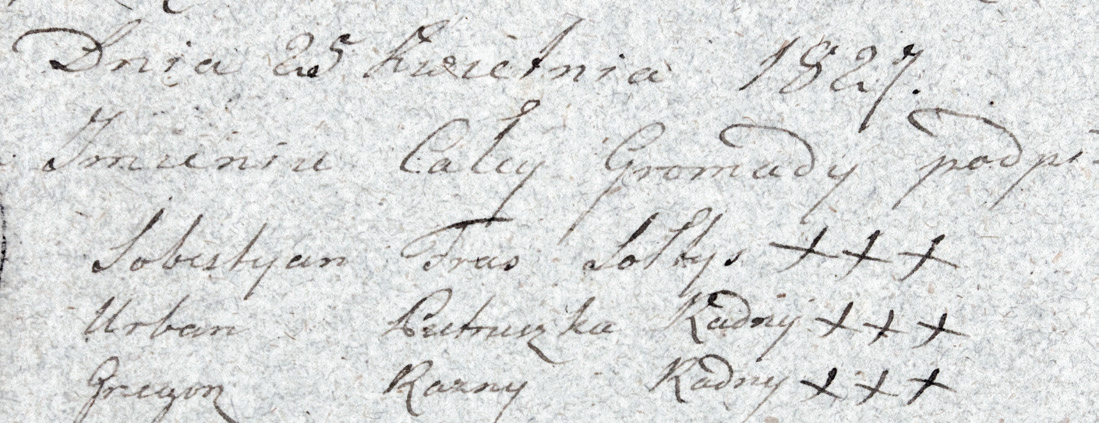 Dnia 25 Kwietnia 1827.
Imieniu Całey Gromady podpi-
Sobestyan Fras Sołtys +++
Urban Pietruszka Radny +++
Gregorz Kazny Radny +++